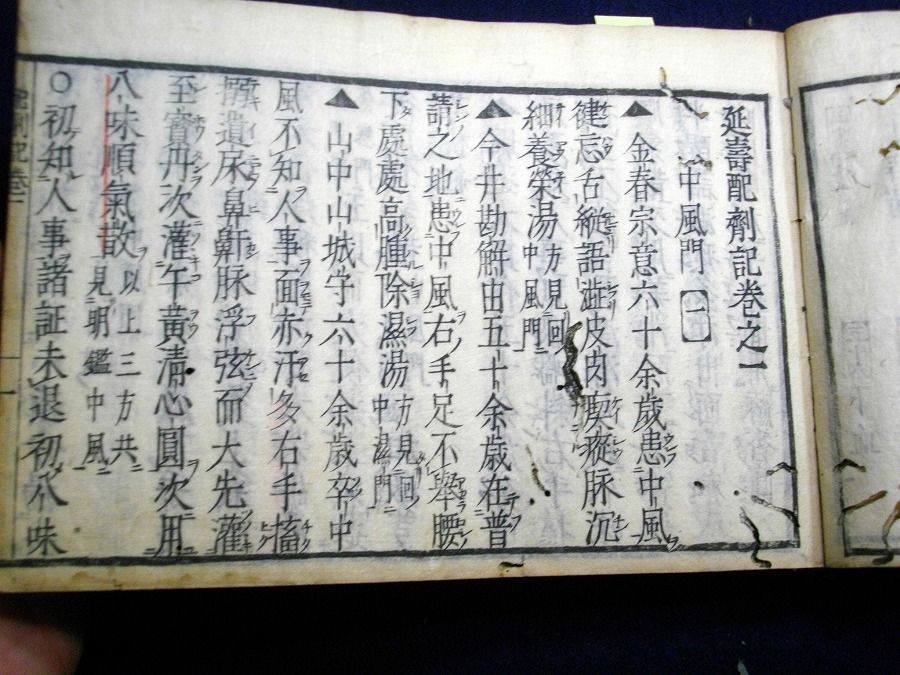 延壽配劑記巻之一
中風門【一】
▲金春宗意六十余歳患中風
健忘舌縦語澁皮肉𤸷瘲脉沉
細養榮湯方見回中風門
▲今井勘解由五十余歳在普
請之地患中風右手足不舉腰
下處處高腫除濕湯方見回中濕門
▲山中山城守六十余歳卒中
風不知人事面赤汗多右手搐
搦遺尿鼻鼾脉浮弦而大先灌
至寳丹次灌午黄清心圓次用
八味順氣散以上三方共見明鑑中風
○初知人事諸証未退初八味